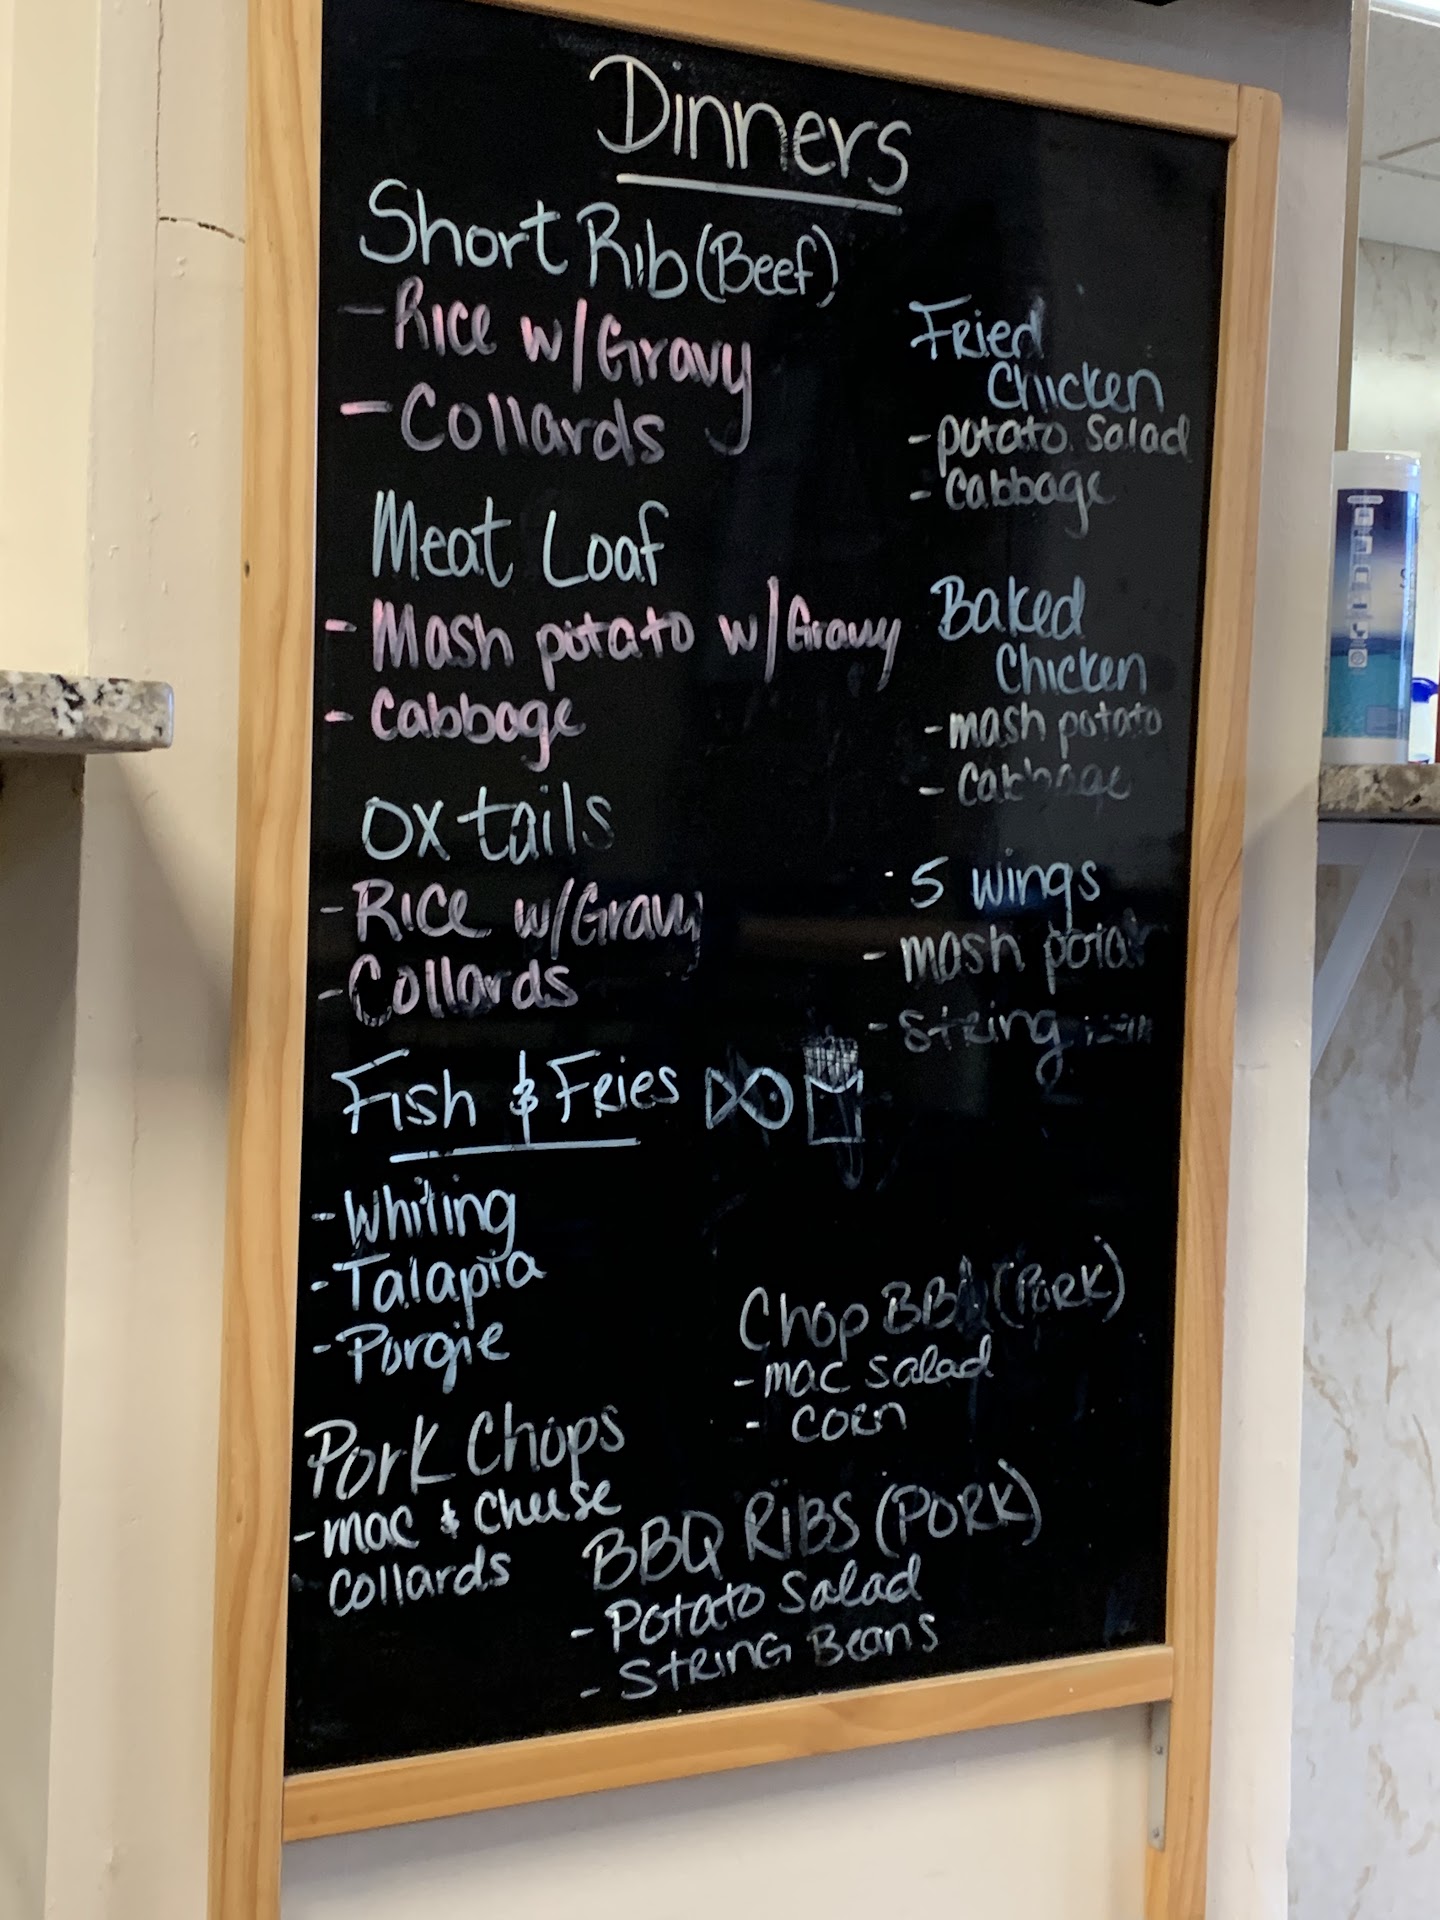 Dinners
Short Rib (Beef)
- Rice w/Gravy
- Collards
Meat Loaf
- Mash potato w/Gravy
- Cabbage
Ox tails
- Rice w/Gravy
- Collards
Fish & Fries
- Whiting
- Talapia
- Porgie
Pork Chops
- mac & cheese
collards
Fried
Chicken
- potato salad
- cabbage
Baked
Chicken
- mash potato
- cabbage
5 wings
- mash
- string
Chop BBQ (Pork)
- mac salad
- corn
BBQ RIBS (PORK)
- Potato Salad
- STRING Beans